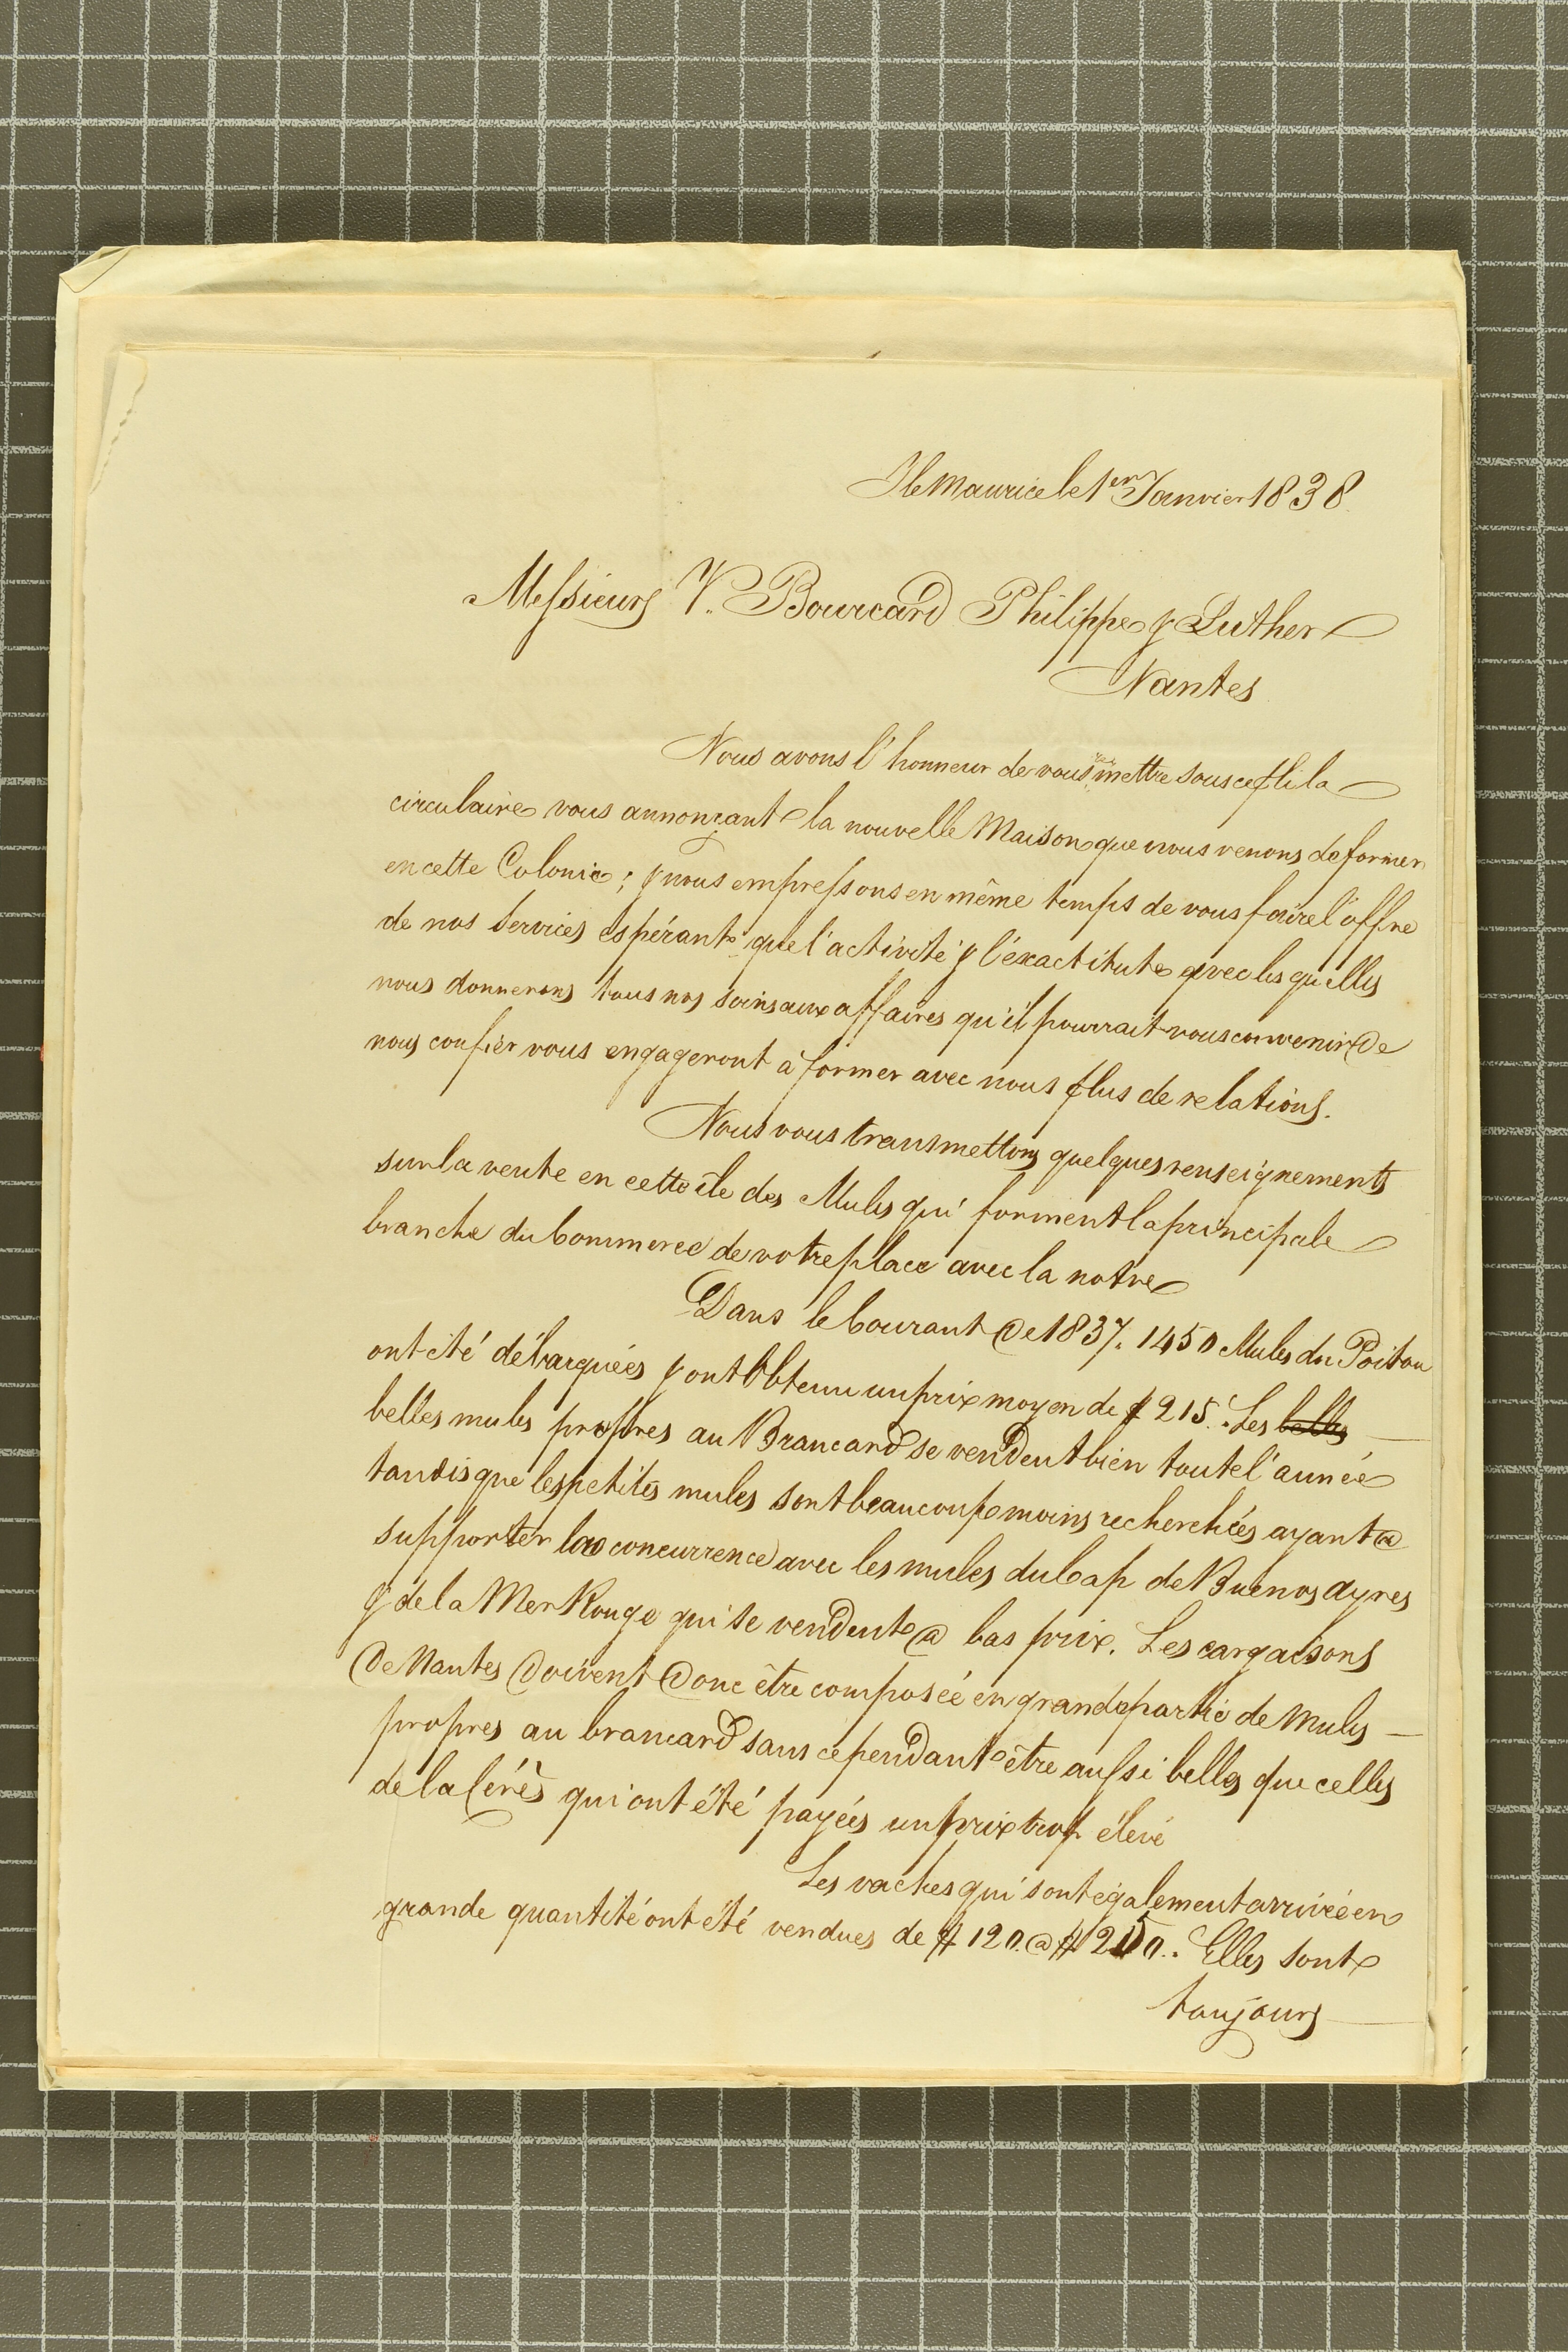 Ile Maurice le 1er Janvier 1838.
Messieurs V. Bourcard Philippe & Luther
Nantes
Nous avons l'honneur de vous remettre sous ce pli la
circulaire vous annonçant la nouvelle Maison que nous venons de former
en cette Colonie ; & nous empressons en même temps de vous faire l'offre
de nos Services espérant que l'activité & l'éxactitute avec lesquelles
nous donnerons tous nos soins aux affaires qu'il pourrait vous convenir de
nous confier vous engageront à former avec nous plus de relations.
Nous vous transmettons quelques renseignements
sur la vente en cette île des Mules qui forment la principale
branche du Commerce de votre place avec la notre
Dans le Courant de 1837. 1450 Mules du Poitou
ont été débarquées & ont Obtenu un prix moyen de $ 215. Les belles
belles mules propres au Brancard se vendent bien toute l'année
tandis que les petites mules sont beaucoup moins recherchées ayant @
supporter la concurrence avec les mules du Cap de Buenos ayres
& de la Mer Rouge qui se vendent @ bas prix. Les cargaisons
de Nantes doivent donc être composée en grande partie de Mules
propres au brancard sans cependant être aussi belles que celles
de la Cérès qui ont été payées un prix trop élevé
Les vaches qui sont également arrivée en
grande quantité ont été vendues de $ 120. @ $ . Elles sont
toujours